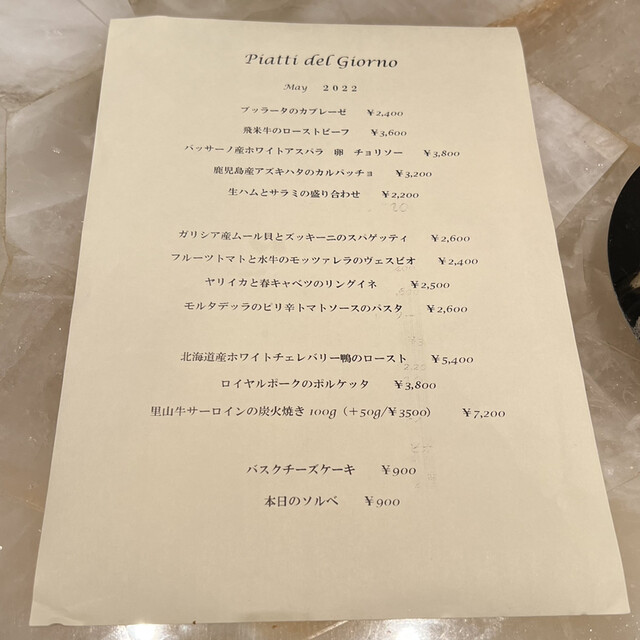 Piatti del Giorno
May 2022
ブッラータのカプレーゼ ¥2,400
飛米牛のローストビーフ ¥3,600
バッサーノ産ホワイトアスパラ 卵 チョリソー ¥3,800
鹿児島産アズキハタのカルパッチョ ¥3,200
生ハムとサラミの盛り合わせ ¥2,200
ガリシア産ムール貝とズッキーニのスパゲッティ ¥2,600
フルーツトマトと水牛のモッツァレラのヴェスビオ ¥2,400
ヤリイカと春キャベツのリングイネ ¥2,500
モルタデッラのピリ辛トマトソースのパスタ ¥2,600
北海道産ホワイトチェレバリー鴨のロースト ¥5,400
ロイヤルポークのポルケッタ ¥3,800
里山牛サーロインの炭火焼き 100g（+50g/¥3500） ¥7,200
バスクチーズケーキ ¥900
本日のソルベ ¥900